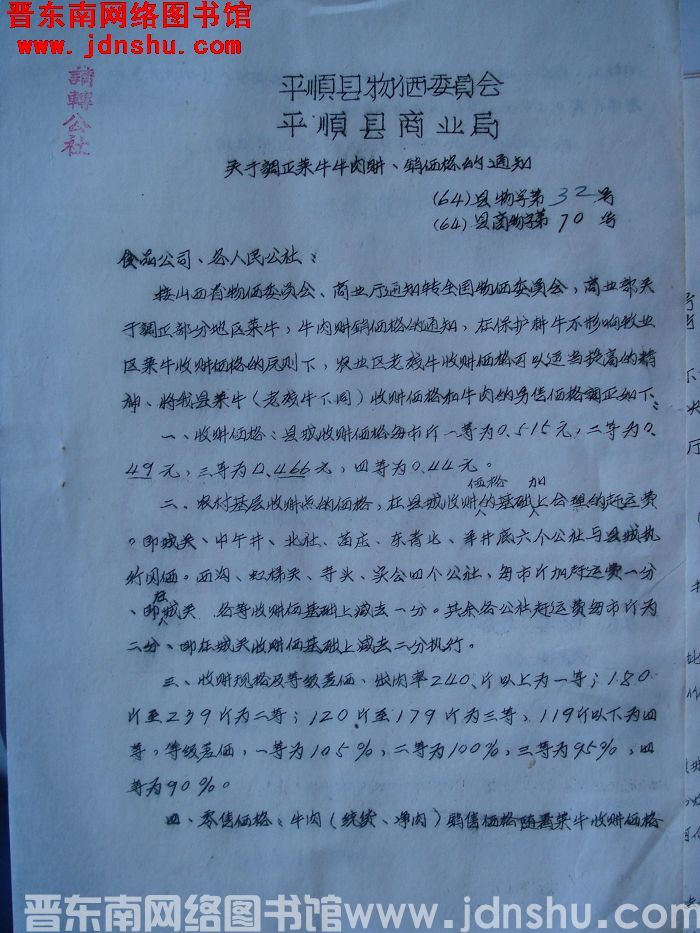 晋东南网络图书馆
www.jdnshu.com
晋东南网络图书馆
www.jdnshu.com
請轉公社
平順县物価委員会
平順县商业局
关于調正菜牛牛肉購、銷価格的通知
(64)县物字第32号
(64)县商物字第70号
食品公司、各人民公社：
按山西省物価委員会、商业厅通知转全国物価委員会，商业部关
于調正部分地区菜牛，牛肉購銷価格的通知，在保护耕牛不影响牧业
区菜牛收購価格的原则下，农业区老残牛收購価格可以适当提高的精
神、将我县菜牛（老残牛下同）收購価格和牛肉的另售価格調正如下：
一、收購価格：县城收購価格每市斤一等为0.515元，二等为0.
49元，三等为0.466元，四等为0.44元。
二、农村基层收購点的価格，在县城收購価格的基础上加合理的赶运费
。即城关、中午井、北社、苗庄、东青北、羊井底六个公社与县城执
行同価。西沟、虹梯关、寺头、实会四个公社、每市斤加赶运费一分
、即在城关各等收購価基础上减去一分。其余各公社赶运费每市斤为
二分、即在城关收購価基础上减去二分执行。
三、收購规格及等级差価、出肉率240斤以上为一等；180
斤至239斤为二等；120斤至179斤为三等，119斤以下为四
等，等级差価，一等为105%，二等为100%，三等为95%，四
等为90%。
四、零售価格：牛肉（统货、净肉）銷售価格随着菜牛收購価格
晋东南网络图书馆 www.jdnshu.com